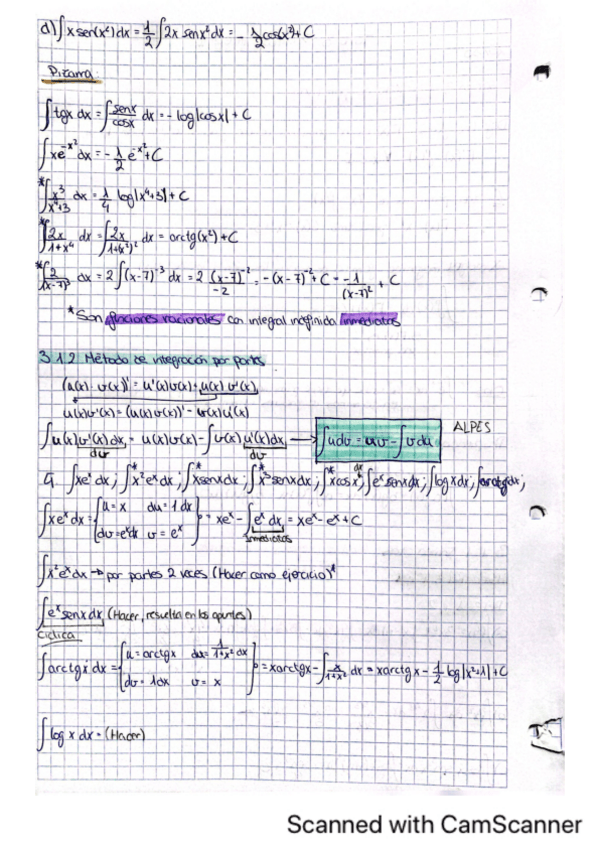 d) ∫ x sen(x²) dx = 1/2 ∫ 2x senx² dx = - 1/2 cos(x²) + C
Pizarra
∫ tgx dx = ∫ senx/cosx dx = - log|cosx| + C
∫ xe^-x² dx = - 1/2 e^-x² + C
*∫ x³/x⁴+3 dx = 1/4 log|x⁴+3| + C
*∫ 2x/1+x⁴ dx = ∫ 2x/1+(x²)² dx = arctg(x²) + C
*∫ 2/(x-7)³ dx = 2 ∫ (x-7)^-3 dx = 2 (x-7)^-2/-2 = - (x-7)^-2 + C = -1/(x-7)² + C
*Son funciones racionales con integral indefinida inmediatas
3.1.2. Método de integración por partes
(u(x) · v(x))' = u'(x)v(x) + u(x) v'(x)
u(x)v'(x) = (u(x)v(x))' - v(x)u'(x)
∫ u(x)v'(x) dx = u(x)v(x) - ∫ v(x) u'(x) dx → ∫ u dv = uv - ∫ v du ALPES
dv du
Ej. ∫ xe^x dx; ∫* x²e^x dx; ∫* xsenx dx; ∫* x²senx dx; ∫* xcosx dx; ∫ e^x senx dx; ∫ logx dx; ∫ arctgx dx;
∫ xe^x dx = { u = x du = 1 dx
dv = e^x dx v = e^x } = xe^x - ∫ e^x dx = xe^x - e^x + C
Inmediatas
∫ x²e^x dx → por partes 2 veces (Hacer como ejercicio)*
∫ e^x senx dx (Hacer, resuelta en los apuntes)
Cíclica
∫ arctgx dx = { u = arctgx du = 1/1+x² dx
dv = 1dx v = x } = xarctgx - ∫ x/1+x² dx = xarctgx - 1/2 log|x²+1| + C
∫ log x dx = (Hacer)
Scanned with CamScanner